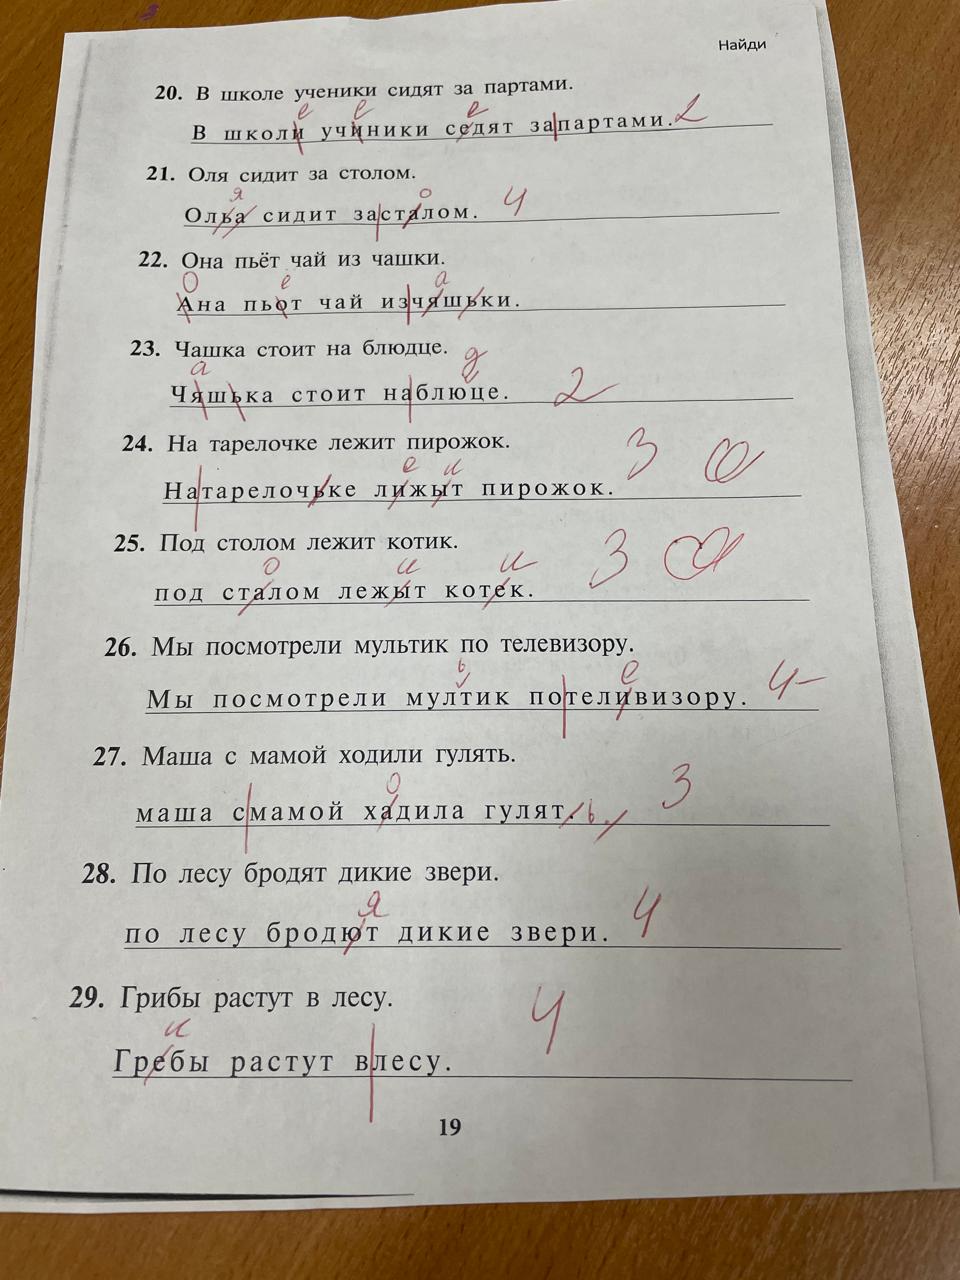 Найди
20. В школе ученики сидят за партами.
е е е
В школи учиники седят запартами. 2
21. Оля сидит за столом.
я о
Олья сидит засталом. 4
22. Она пьёт чай из чашки.
О ё а
Ана пьот чай изчяшьки.
23. Чашка стоит на блюдце.
а д
Чяшька стоит наблюце. 2
24. На тарелочке лежит пирожок.
е и 3
Натарелочьке лижыт пирожок.
25. Под столом лежит котик.
о и и 3
под сталом лежыт котек.
26. Мы посмотрели мультик по телевизору.
ь е
Мы посмотрели мултик потеливизору. 4-
27. Маша с мамой ходили гулять.
о
маша смамой хадила гулят. ь. 3
28. По лесу бродят дикие звери.
я
по лесу бродют дикие звери. 4
29. Грибы растут в лесу.
и
Гребы растут влесу. 4
19